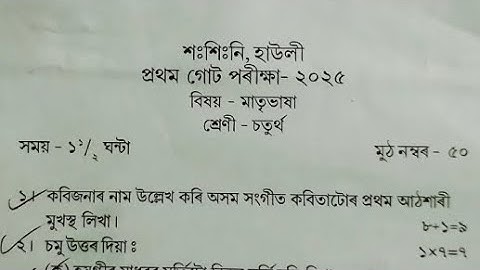 শঃশিঃনি, হাউলী
প্ৰথম গোট পৰীক্ষা- ২০২৫
বিষয় - মাতৃভাষা
শ্ৰেণী - চতুৰ্থ
সময় - ১ ১/২ ঘন্টা মুঠ নম্বৰ - ৫০
১। কবিজনাৰ নাম উল্লেখ কৰি অসম সংগীত কবিতাটোৰ প্ৰথম আঠশাৰী
মুখস্থ লিখা। ৮+১=৯
২। চমু উত্তৰ দিয়া : ১×৭=৭